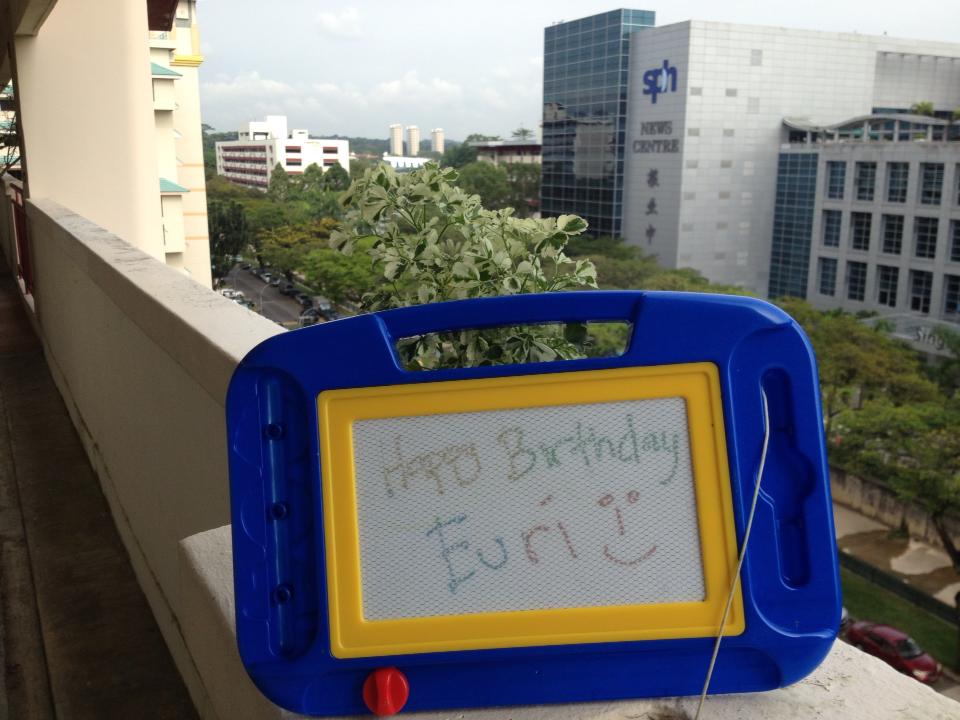 sph
NEWS
CENTRE
報
業
中
Happy Birthday
Euri